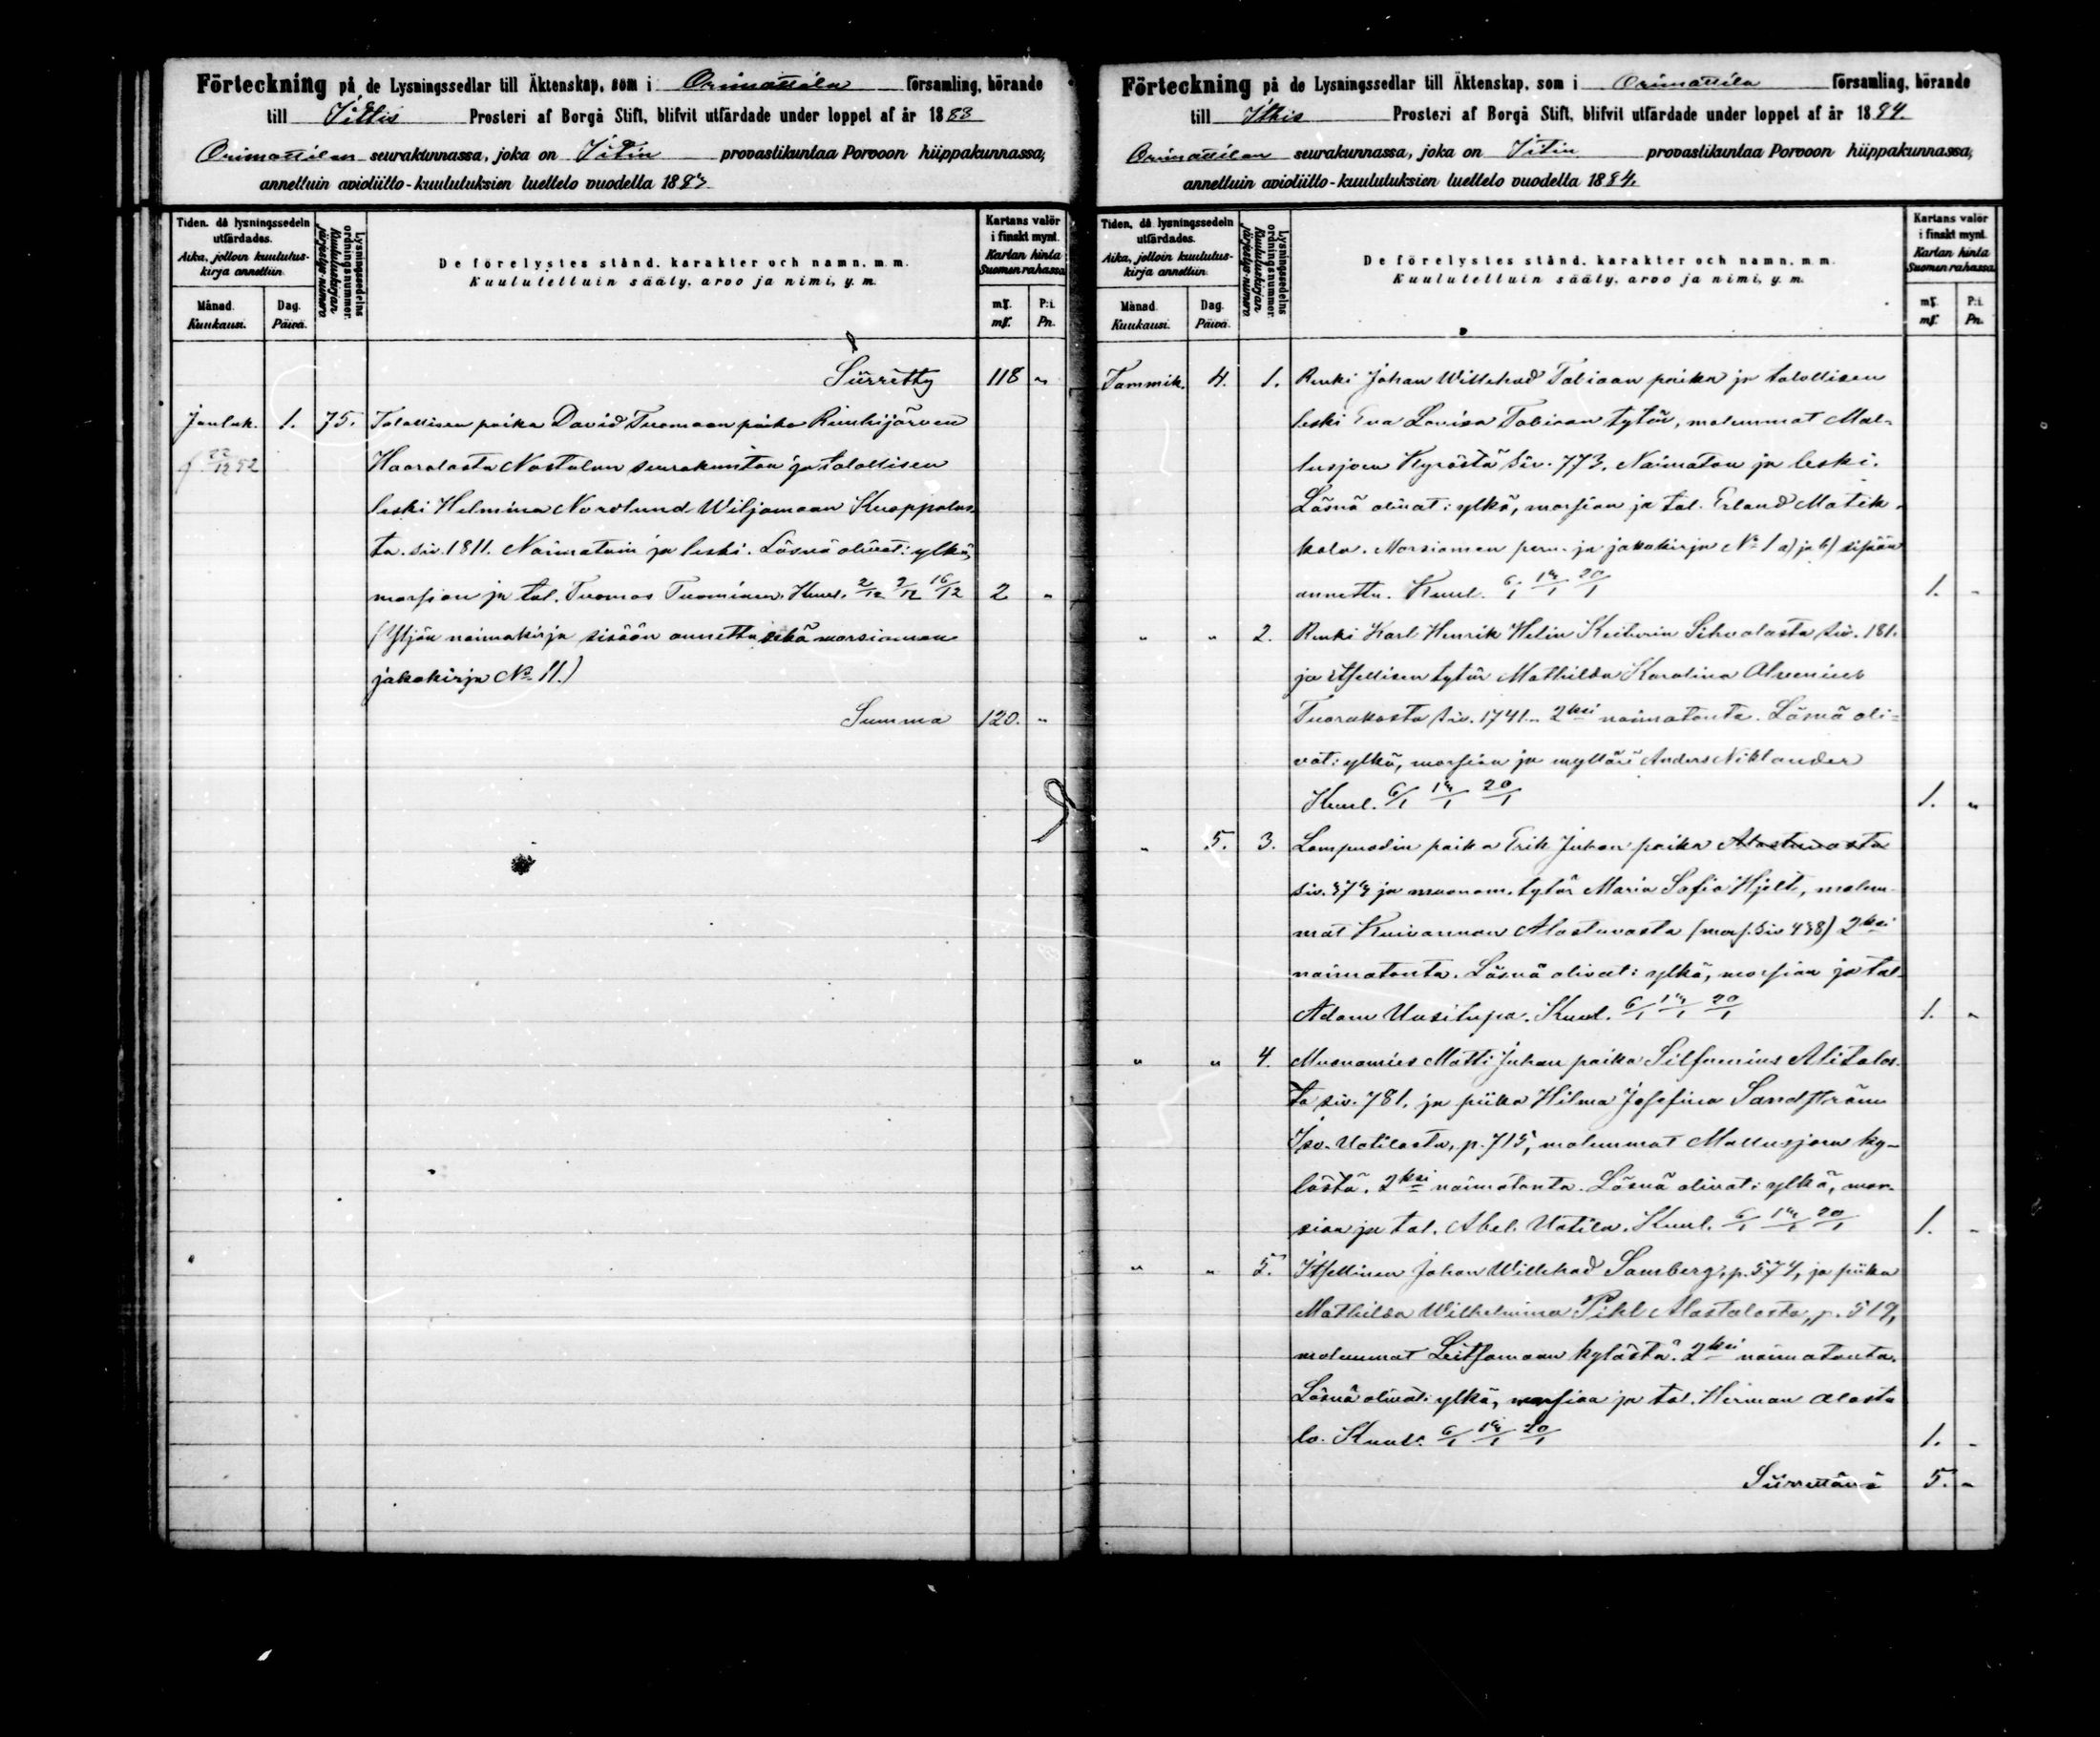 Förteckning på de Lysningssedlar till Äktenskap, som i Orimattila församling, hörande
till Ittis Prosteri af Borgå Stift, blifvit utfärdade under loppet af år 1883
Orimattilan seurakunnassa, joka on Iitin provastikuntaa Porvoon hiippakunnassa,
annettuin avioliitto-kuulutuksien luettelo vuodella 1883.
Tiden, då lysningssedeln
utfärdades.
Aika, jolloin kuulutus-
kirja annettiin
Månad.
Kuukausi.
Dag.
Päivä.
Lysningssedelns
ordningsnummer.
Kuulutuskirjan
järjestys-numero
De förelystes stånd, karakter och namn, m. m.
Kuulutettuin sääty, arvo ja nimi, y. m.
Kartans valör
i finskt mynt.
Kartan hinta
Suomen rahassa
mƒ.
mƒ.
P:i.
Pn.
Siirretty 118 "
Jouluk. 1. 75. Talollisen poika David Tuomaan poika Ruuhijärven
Haaralasta Nastolan seurakuntaa ja talollisen
leski Helmina Norlund Wiljamaan Knoppalas
ta. siv. 1811. Naimatoin ja leski. Läsnä olivat: ylkä,
morsian ja tal. Tuomas Tuominen. Kuul. 2/12 9/12 16/12 2 "
(Yljän naimakirja sisään annettu sekä morsiamen
jakokirja No 11.)
Summa 120. "
Förteckning på de Lysningssedlar till Äktenskap, som i Orimattila församling, hörande
till Ithis Prosteri af Borgå Stift, blifvit utfärdade under loppet af år 1884.
Orimattilan seurakunnassa, joka on Iitin provastikuntaa Porvoon hiippakunnassa,
annettuin avioliitto-kuulutuksien luettelo vuodella 1884.
Tiden, då lysningssedeln
utfärdades.
Aika, jolloin kuulutus-
kirja annettiin.
Månad.
Kuukausi.
Dag.
Päivä.
Lysningssedelns
ordningsnummer.
Kuulutuskirjan
järjestys-numero
De förelystes stånd, karakter och namn, m. m.
Kuulutettuin sääty, arvo ja nimi, y. m.
Kartans valör
i finskt mynt.
Kartan hinta
Suomen rahassa
mƒ.
mƒ.
P:i.
Pn.
Tammik. 4. 1. Renki Johan Willehad Tobiaan poika ja talollisen
leski Eva Lovisa Tobiaan tytär, molemmat Mal-
lusjoen Kyröstä siv. 773. Naimaton ja leski.
Läsnä olivat: ylkä, morsian ja tal. Erland Matik-
kala. Morsiamen peru- ja jakokirja No 1 a) ja b) sisään
annettu. Kuul. 6/1 13/1 20/1 1. "
" " 2. Renki Karl Henrik Helin Keiturin Sihvolasta siv. 181.
ja itsellisen tytär Mathilda Karolina Alvenius
Tuorakasta siv. 1741. 2ksi naimatonta. Läsnä oli-
vat: ylkä, morsian ja mylläri Anders Niklander
Kuul. 6/1 13/1 20/1 1. "
" 5. 3. Lampuodin poika Erik Juhan poika Alastuvasta
siv. 373 ja muonam. tytär Maria Sofia Hjelt, molem-
mat Kuivannon Alastuvasta (mors. siv 438) 2ksi
naimatonta. Läsnä olivat: ylkä, morsian ja tal.
Adam Uusitupa. Kuul. 6/1 13/1 20/1 1. "
" " 4. Muonamies Matti Juhan poika Silfvenius Alitalos-
ta siv. 781. ja piika Hilma Josefina Sandström
Iso-Uotilasta, p. 715, molemmat Mallusjoen ky-
lästä. 2ksi naimatonta. Läsnä olivat: ylkä, mor-
sian ja tal. Abel Uotila. Kuul. 6/1 13/1 20/1 1. "
" " 5. Itsellinen Johan Willehad Samberg, p. 574, ja piika
Mathilda Wilhelmina Pihl Alastalosta, p. 519,
molemmat Leitsamaan kylästä. 2ksi naimatonta.
Läsnä olivat: ylkä, morsian ja tal. Herman Alasta
lo. Kuul. 6/1 13/1 20/1 1. "
Siirrettävä 5. "